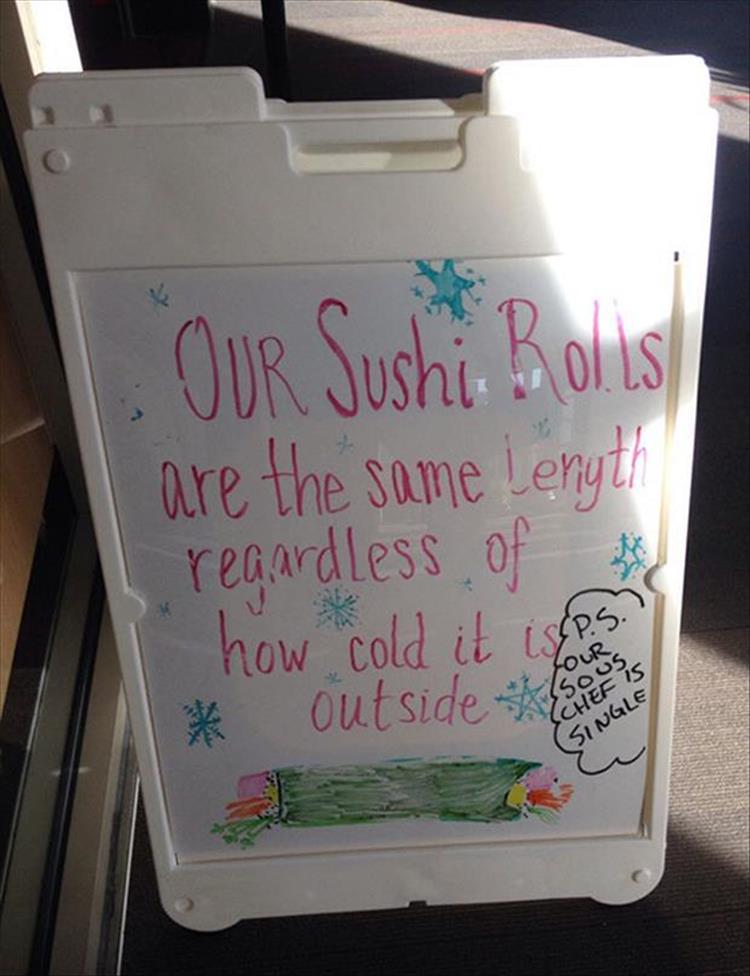 OUR Sushi Rolls
are the same Length
regardless of
how cold it is
outside
P.S.
OUR
SOUS
CHEF IS
SINGLE